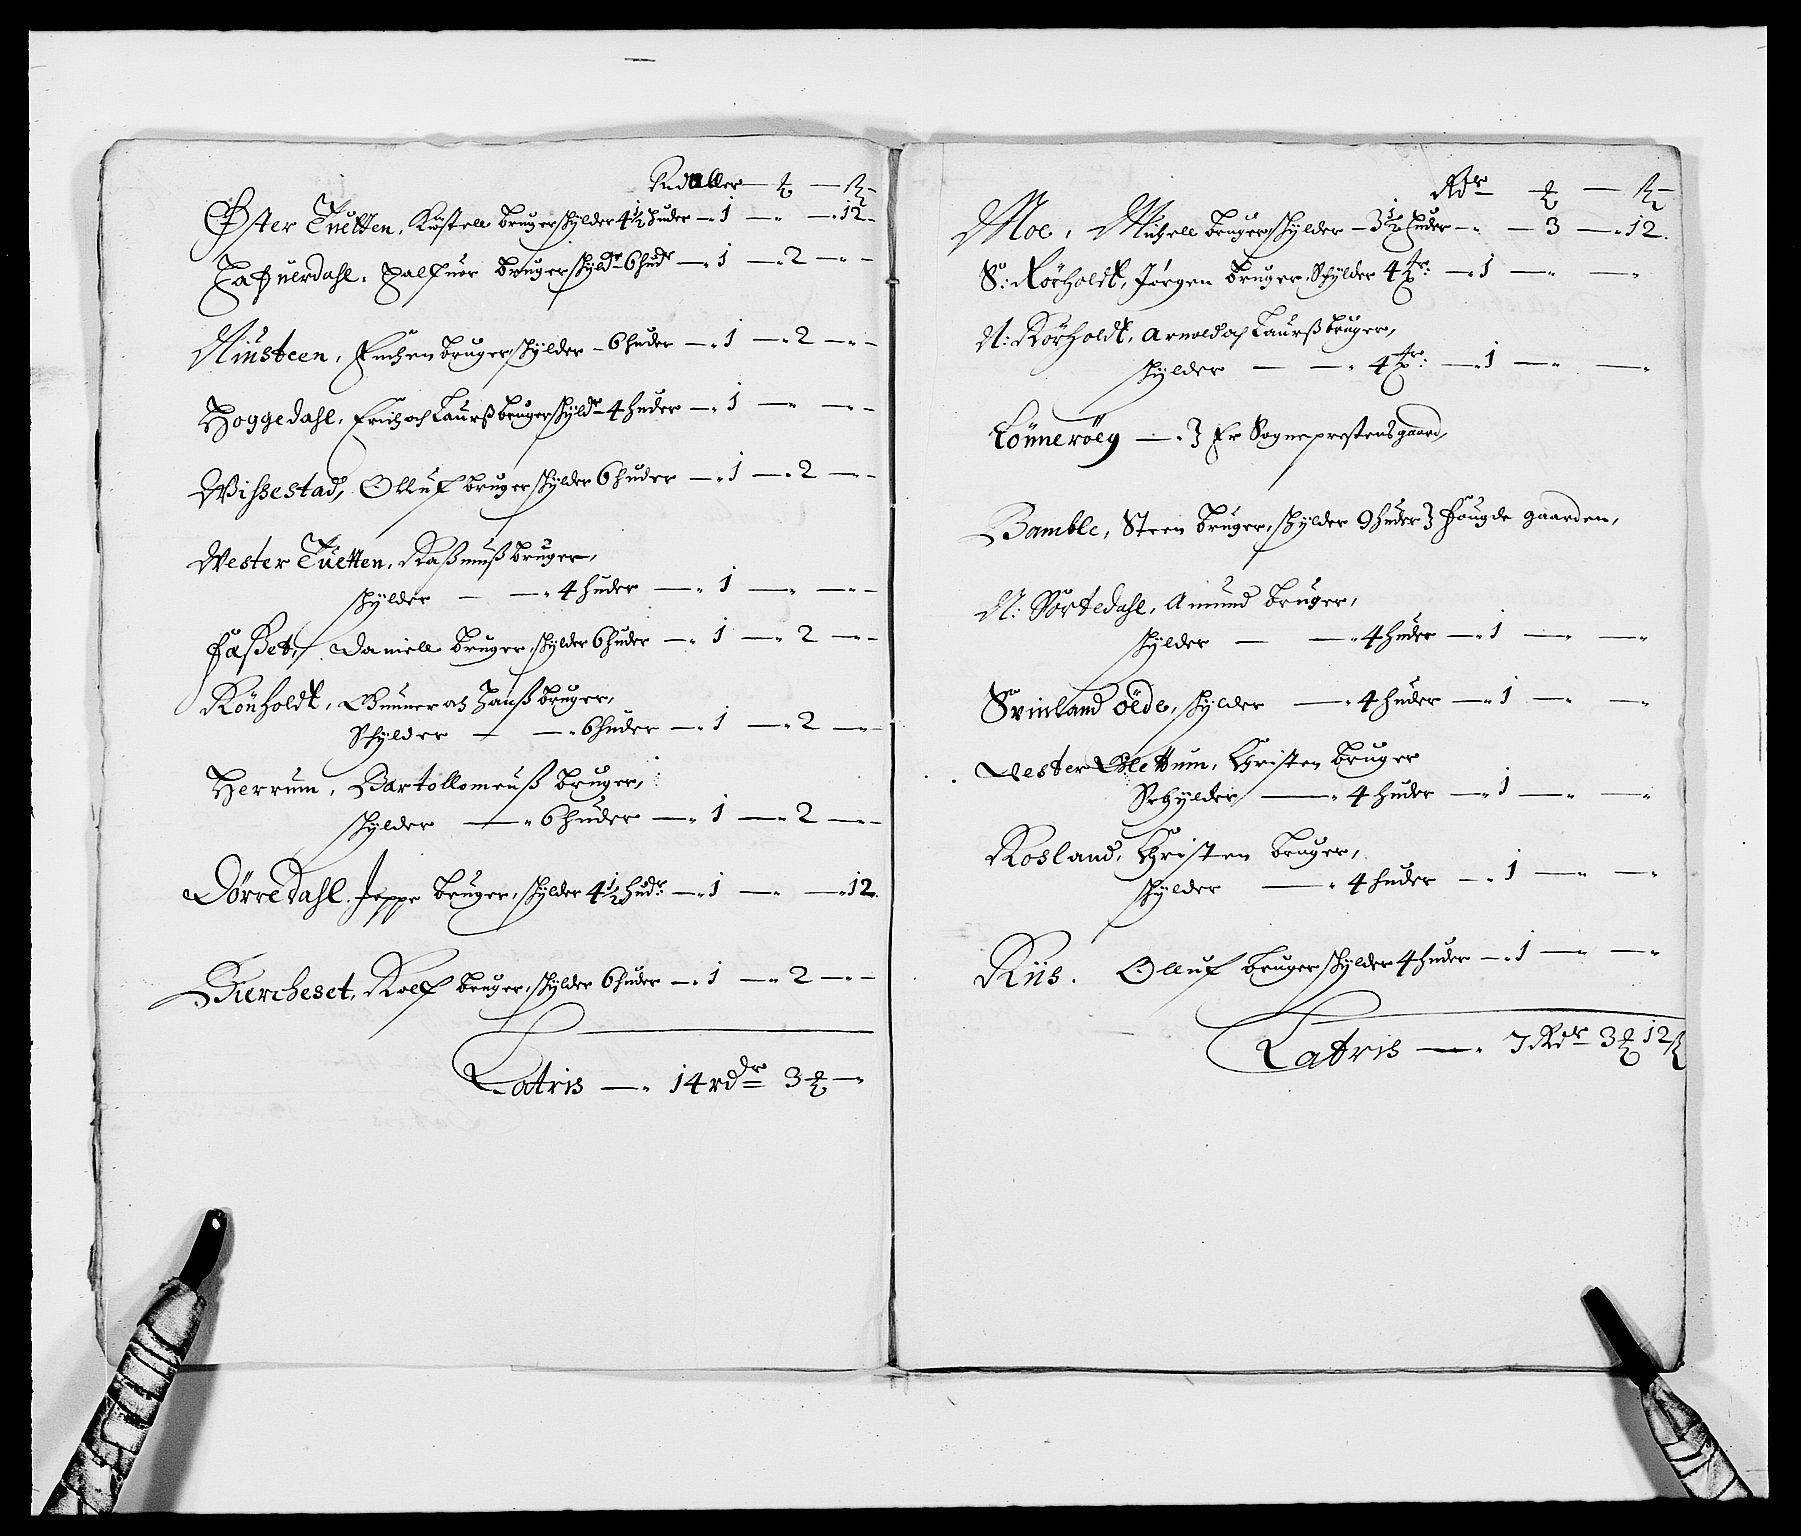 Rdaller — ℔ — ß
Øster Tuetten, Kiøstell bruger schylder 4½ huder — 1 — " — 12
Hafuerdahl, Halfuor bruger schyldr 6 hudr — 1 — 2 — "
Niusteen, bruger schylder — 6 huder — 1 — 2 — "
Hoggedahl, Erich och Laurß bruger schyldr 4 huder — 1 — " — "
Wissestad, Olluf bruger schylder 6 huder — 1 — 2 — "
Wester Tuetten, Raßmuß bruger,
schylder — — 4 huder — 1 — " — "
Faßet, Daniell bruger, schylder 6 huder — 1 — 2 — "
Rönholdt, Gunner och Hanß bruger,
Schylder — — 6 huder — 1 — 2 — "
Herrum, Bartollomeuß bruger,
schylder — 6 huder — 1 — 2 — "
Dørredahl, Jeppe bruger, schylder 4½ hudr — 1 — " — 12
Bierckeset, Rolf bruger, schylder 6 huder — 1 — 2 — "
Latris — 14 rdr 3 ℔ — "
Rdr ℔ — ß
Moe, Michell bruger schylder — 3½ huder — " — 3 — 12
S: Rörholdt, Jörgen bruger, Schylder 4 — 1 — " — "
N: Rörholdt, Arnold och Laurß bruger,
schylder — — 4 — 1 — " — "
Lönneröeg — Er Sogneprestens gaard,
Bamble, Steen bruger, schylder 9 huder fougde gaarden,
N: Vortedahl, Amund bruger,
schylder — — 4 huder — 1 — " — "
Svinland öede, schylder — 4 huder — 1 — " — "
Vester Glettum, Christen bruger
Schylder — 4 huder — 1 — " — "
Rosland, Christen bruger,
schylder — 4 huder — 1 — " — "
Riis. Olluf bruger schylder 4 huder — 1 — " — "
Latris — 7 Rdr 3 ℔ 12 ß